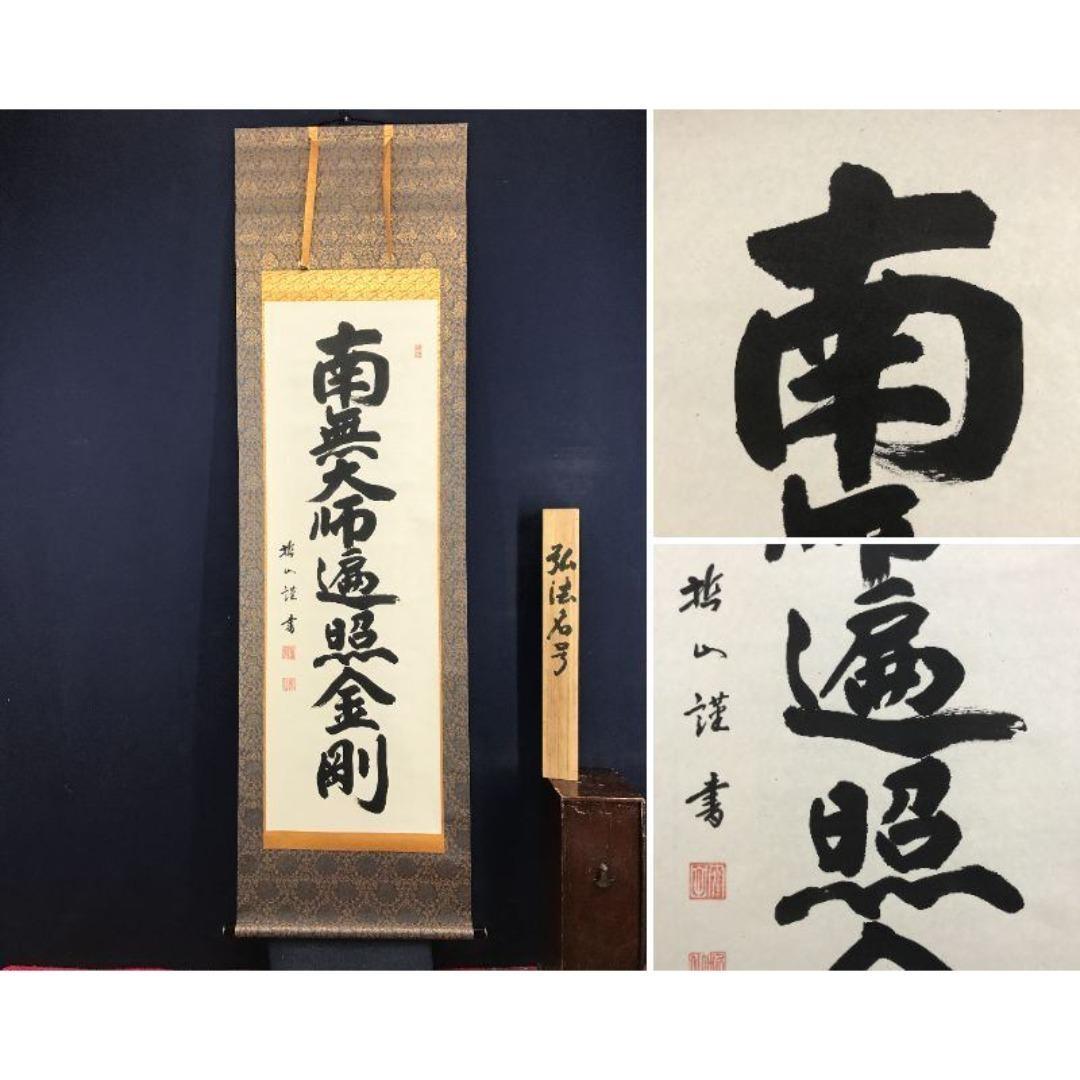 南無大師遍照金剛
山謹書
弘法名号
南
山謹書
遍照